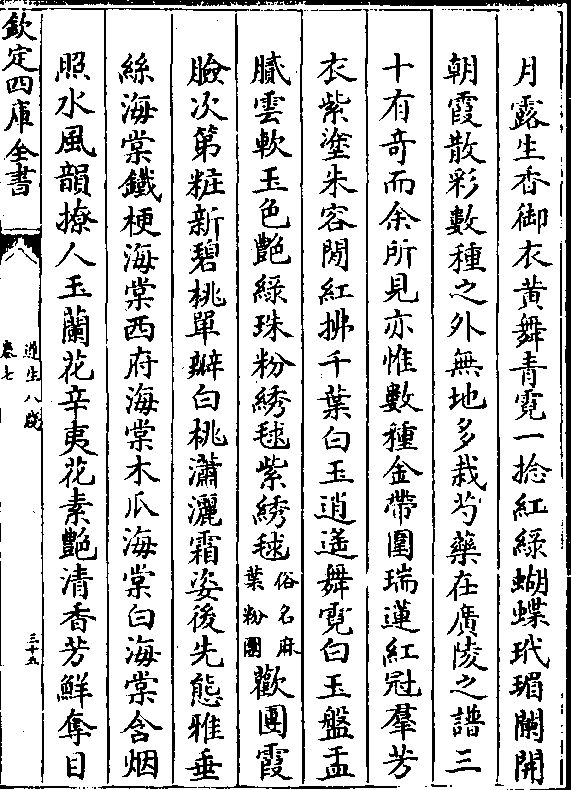 月露生香御衣黄舞青霓一捻紅緑蝴蝶玳瑁闌開
朝霞散彩數種之外無地多栽芍藥在廣陵之譜三
十有奇而余所見亦惟數種金帶圍瑞蓮紅冠羣芳
衣紫塗朱容閒紅拂千葉白玉逍遥舞霓白玉盤盂
膩雲軟玉色艷緑珠粉綉毬紫綉毬俗名麻葉粉團歡團霞
臉次第粧新碧桃單瓣白桃瀟灑霜姿後先態雅垂
絲海棠鐵梗海棠西府海棠木瓜海棠白海棠含烟
照水風韻撩人玉蘭花辛夷花素艷清香芳鮮奪目
欽定四庫全書
遵生八牋
卷七
三十五